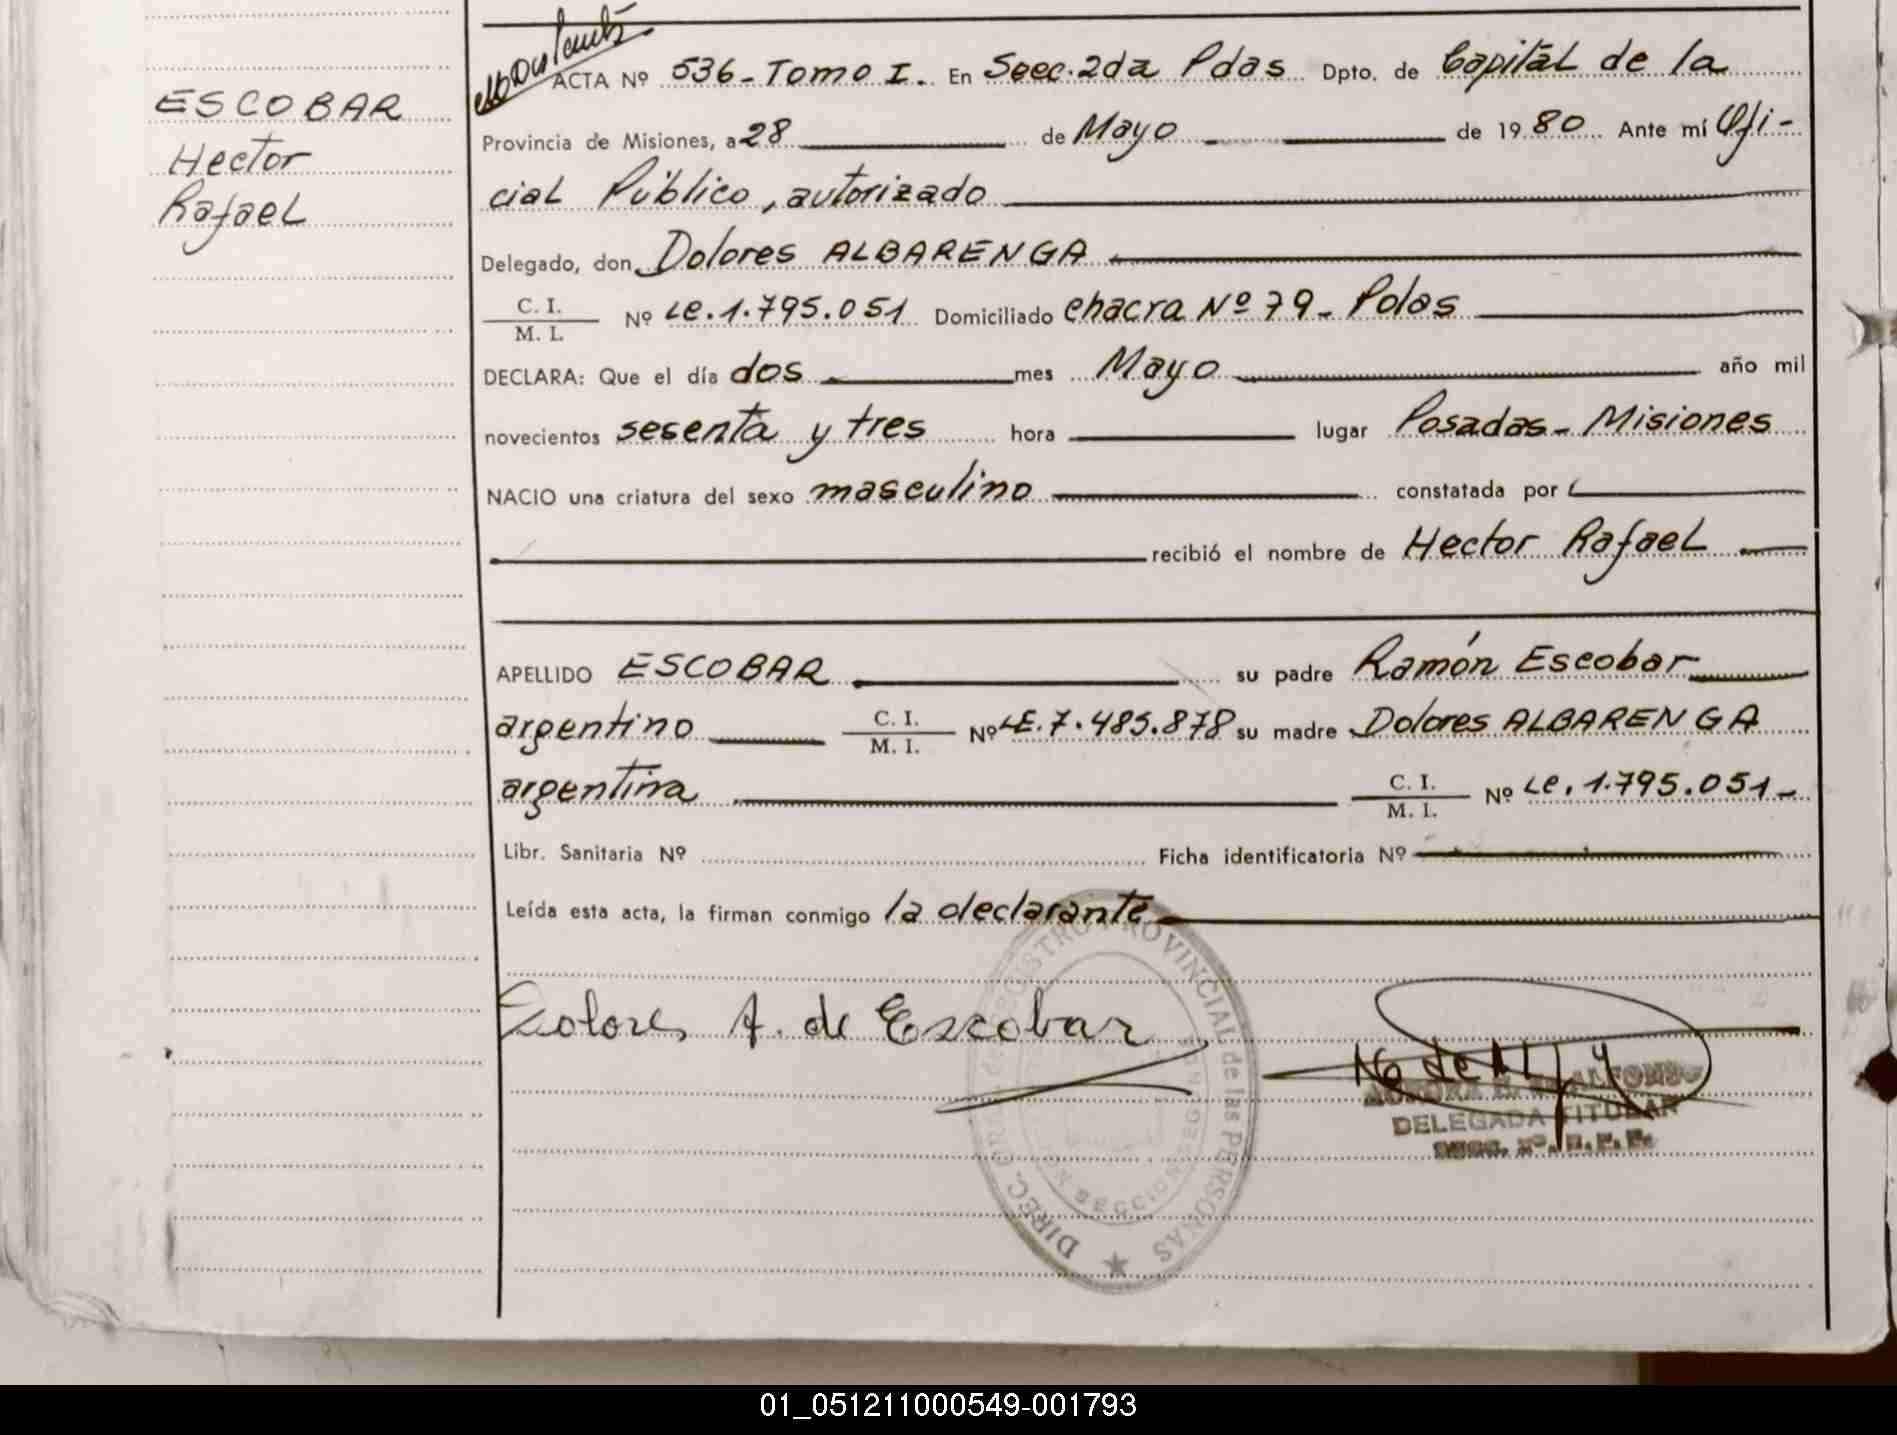 ESCOBAR
Hector
Rafael
ACTA Nº 536 - Tomo I. En Secc. 2da Pdas Dpto. de Capital de la
Provincia de Misiones, a 28 de Mayo de 1980 Ante mí Ofi-
cial Público, autorizado
Delegado, don Dolores ALBARENGA
C. I.
M. I. Nº Le. 1.795.051 Domiciliado chacra Nº 79 - Pdas
DECLARA: Que el día dos mes Mayo año mil
novecientos sesenta y tres hora lugar Posadas - Misiones
NACIO una criatura del sexo masculino constatada por
recibió el nombre de Hector Rafael
APELLIDO ESCOBAR su padre Ramón Escobar
argentino C. I. M. I. Nº LE. 7.485.878 su madre Dolores ALBARENGA
argentina C. I. M. I. Nº Le. 1.795.051 -
Libr. Sanitaria Nº Ficha identificatoria Nº
Leída esta acta, la firman conmigo la declarante
Dolores A. de Escobar
DELEGADA TITULAR
DIREC. GRAL. de REGISTRO PROVINCIAL de las PERSONAS
SECCION SEGUN
01_051211000549-001793